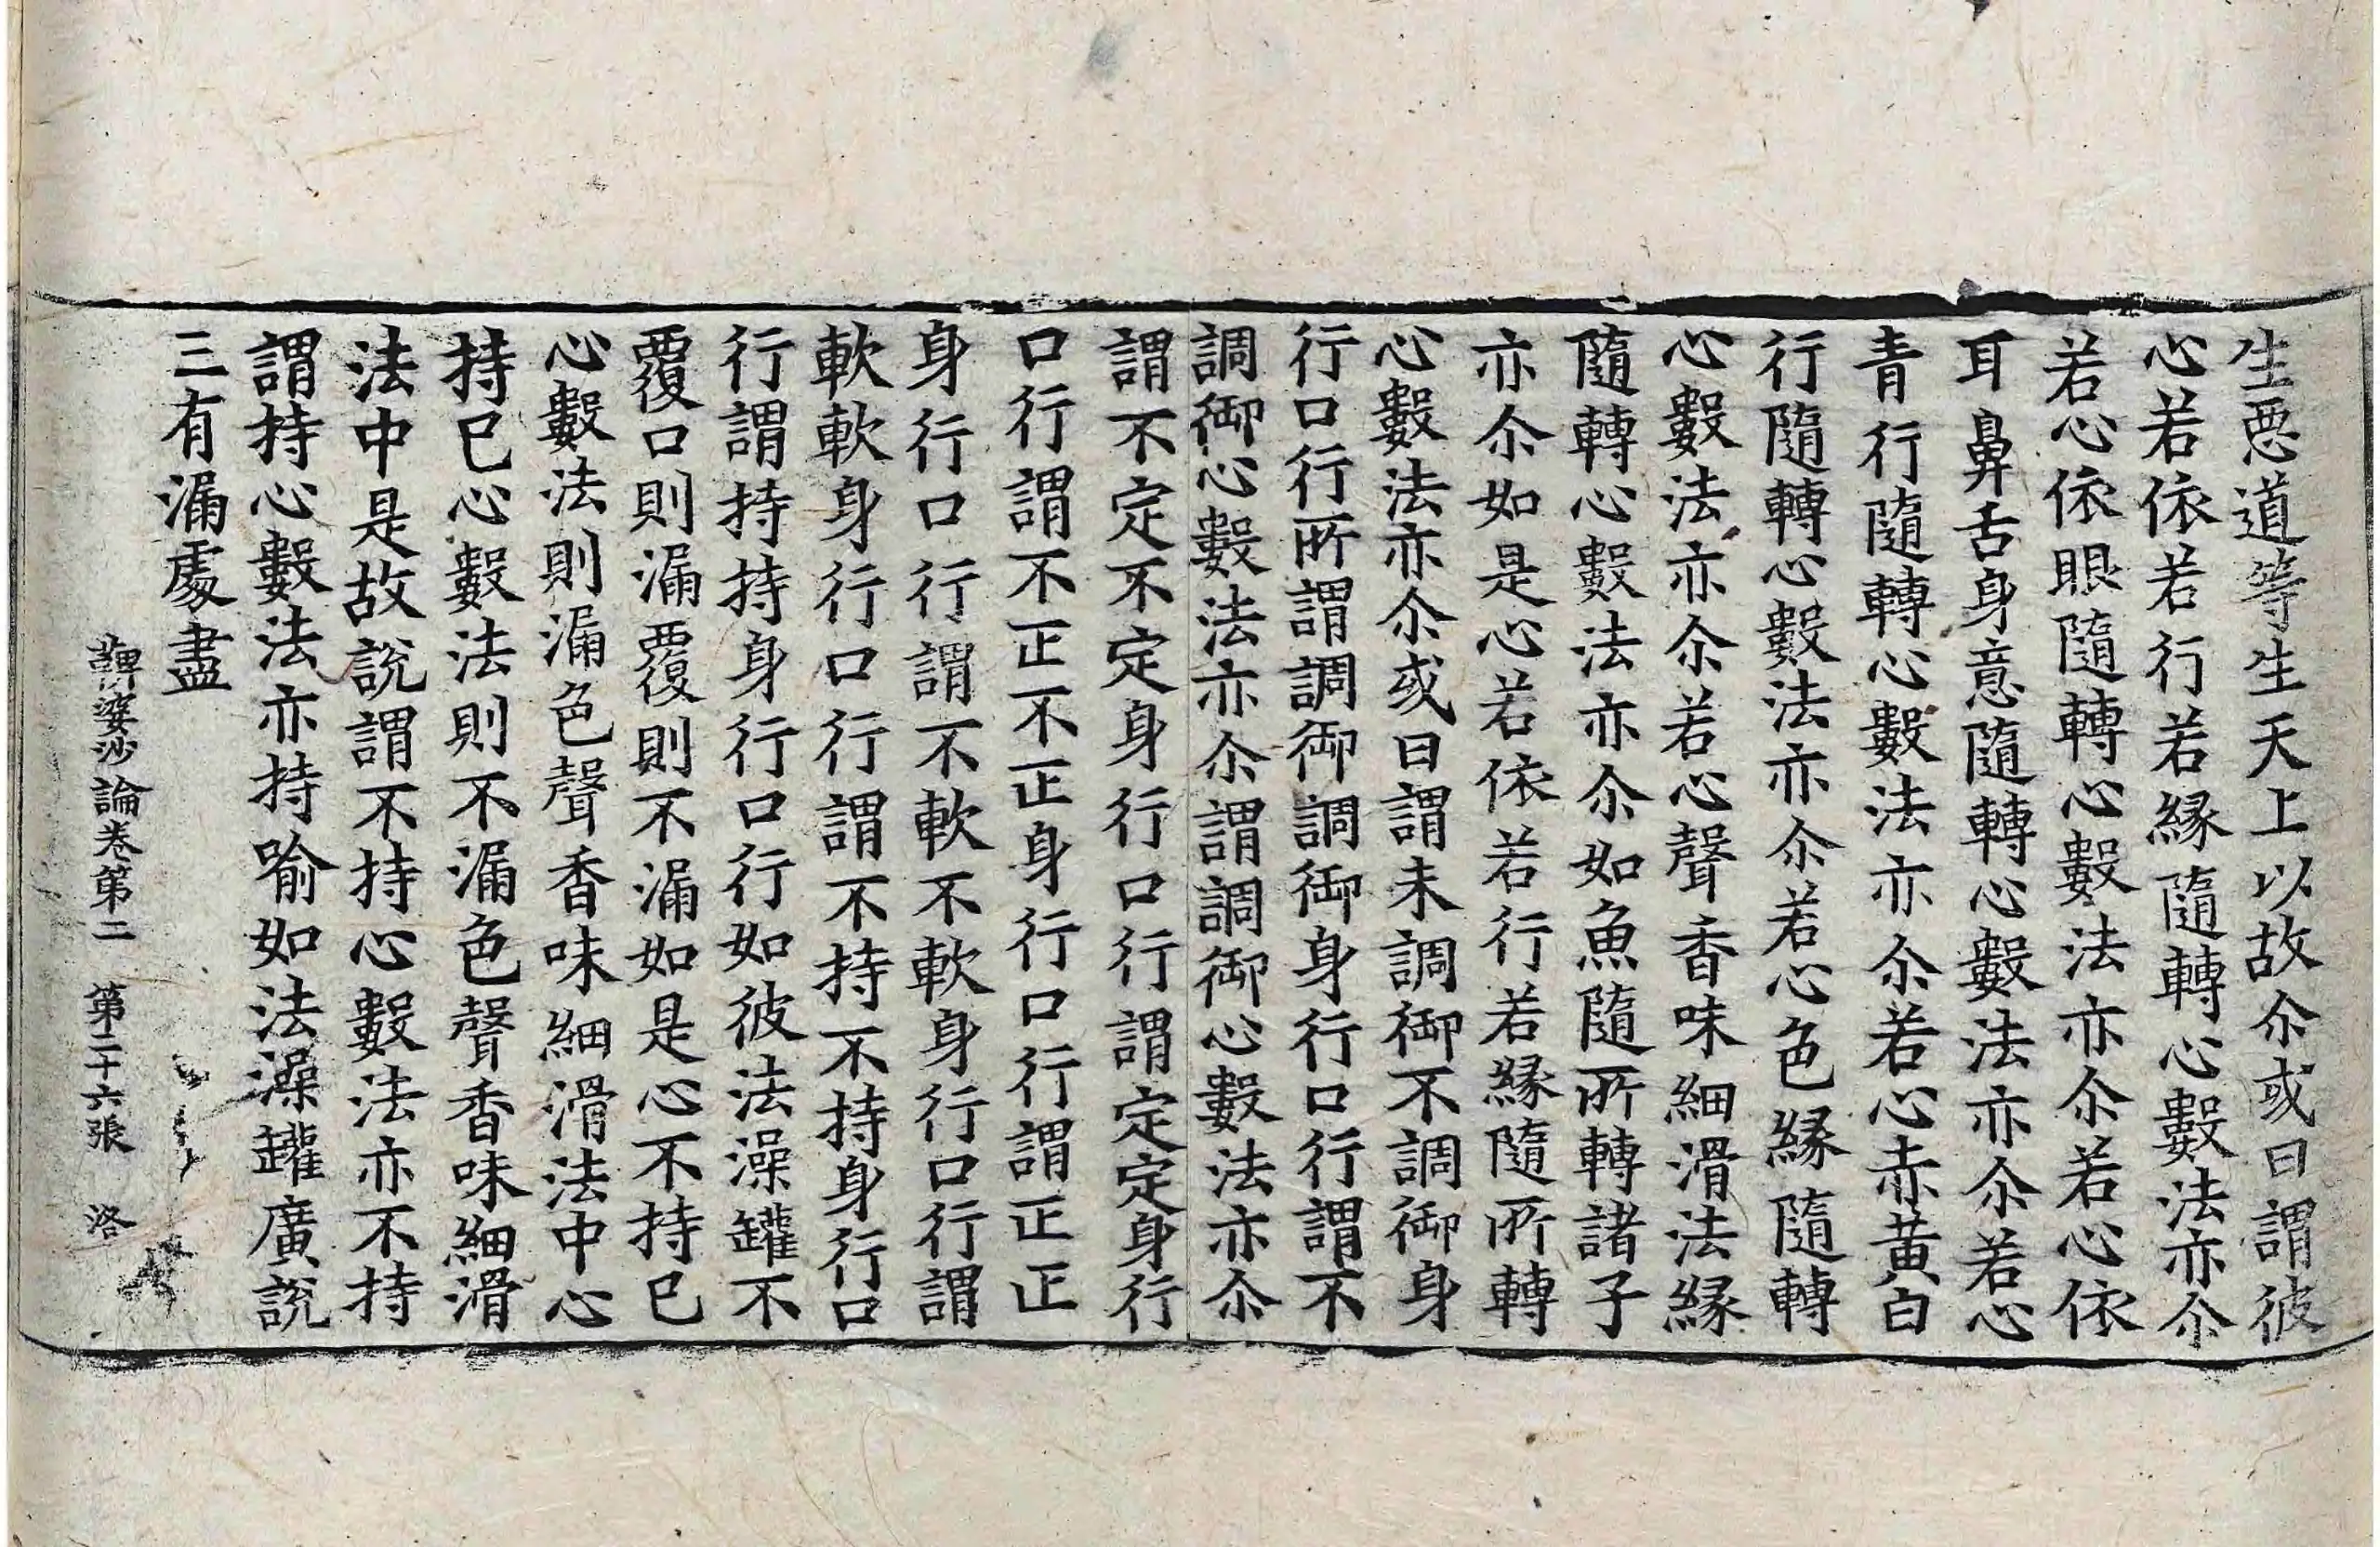 生惡道等生天上以故尒或曰謂彼
心若依若行若緣隨轉心數法亦尒
若心依眼隨轉心數法亦尒若心依
耳鼻舌身意隨轉心數法亦尒若心
青行隨轉心數法亦尒若心赤黃白
行隨轉心數法亦尒若心色緣隨轉
心數法亦尒若心聲香味細滑法緣
隨轉心數法亦尒如魚隨所轉諸子
亦尒如是心若依若行若緣隨所轉
心數法亦尒或曰謂未調御不調御身
行口行所謂調御調御身行口行謂不
調御心數法亦尒謂調御心數法亦尒
謂不定不定身行口行謂定定身行
口行謂不正不正身行口行謂正正
身行口行謂不軟不軟身行口行謂
軟軟身行口行謂不持不持身行口
行謂持持身行口行如彼法澡罐不
覆口則漏覆則不漏如是心不持已
心數法則漏色聲香味細滑法中心
持已心數法則不漏色聲香味細滑
法中是故說謂不持心數法亦不持
謂持心數法亦持喻如法澡罐廣說
三有漏處盡
鞞婆沙論卷第二 第二十六張 洛